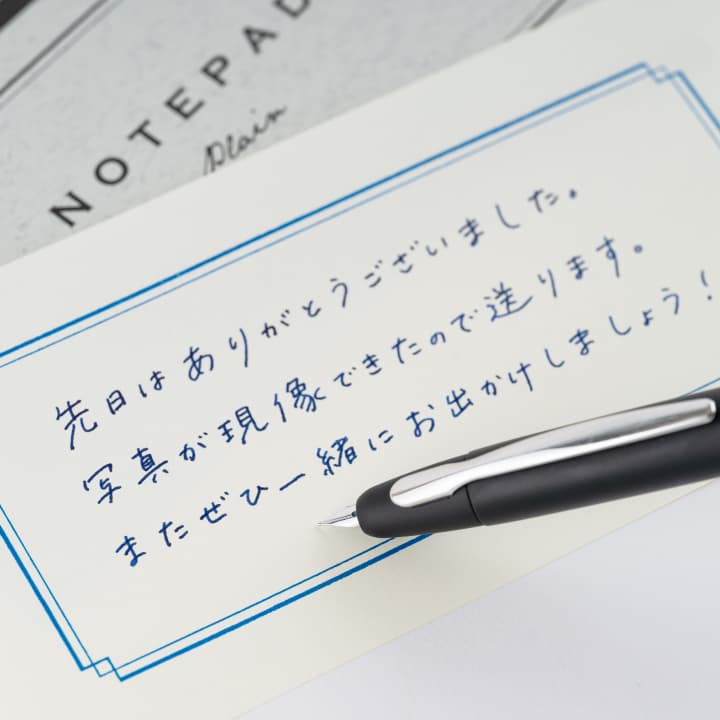 NOTEPAD
Plain
先日はありがとうございました。
写真が現像できたので送ります。
またぜひ一緒にお出かけしましょう!